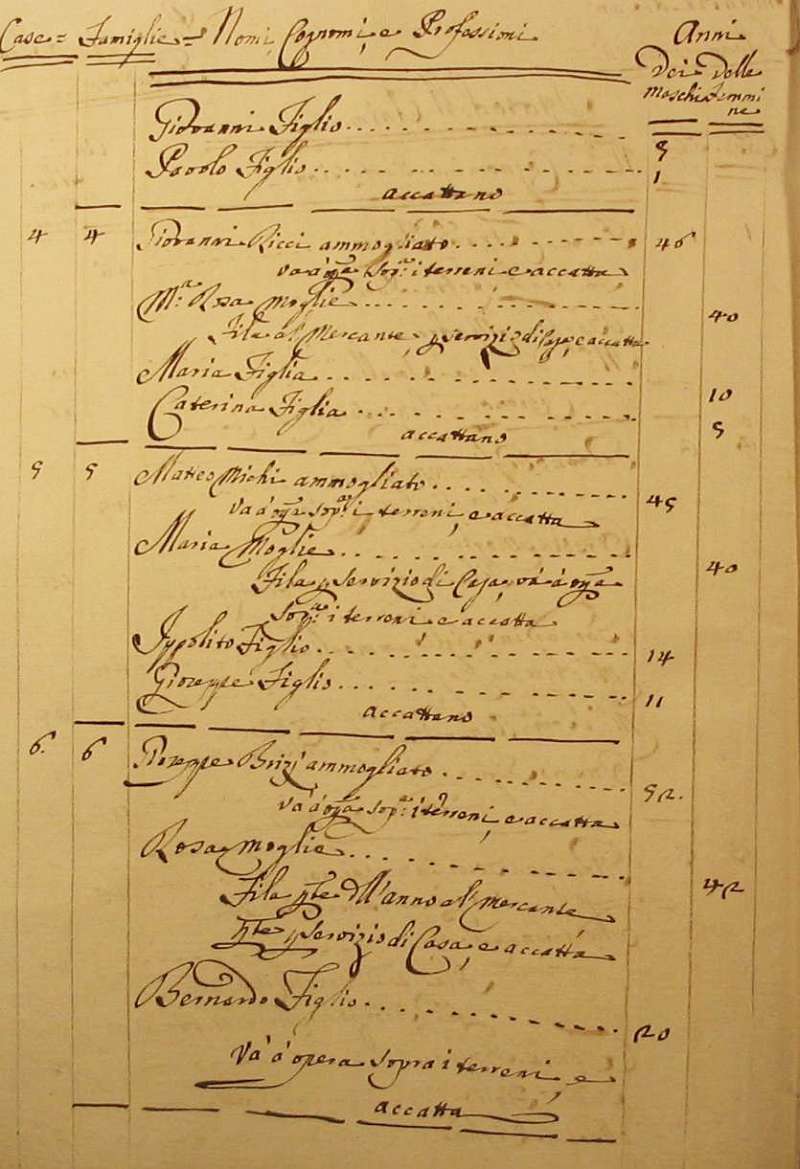 Case = Famiglie = Nomi, Cognomi, e Professioni Anni
Dei Maschi Delle Femmine
Giovanni Figlio 5
Paolo Figlio 1
accattano
4 4 Giovanni Ricci ammogliato 46
va à opª sopª i terreni, e accatta
Mª Rosa moglie 40
Fila al Mercante, p servizio di Casa, e accatta
Maria Figlia 10
Caterina Figlia 5
accattano
5 5 Matteo Michi ammogliato 45
va à opª sopª i terreni, e accatta
Maria Moglie 40
Fila p servizio di Casa, và à opª
sopª i terreni e accatta
Ippolito Figlio 14
Giuseppe Figlio 11
accattano
6. 6 Giuseppe Brizi ammogliato 52.
và à opª sopª i terreni, e accatta
Rosa moglie 42
Fila pte dll'anno al mercante
pte p servizio di Casa, e accatta
Bernardo Figlio 20
Và à opera sopra i terreni, e
accatta